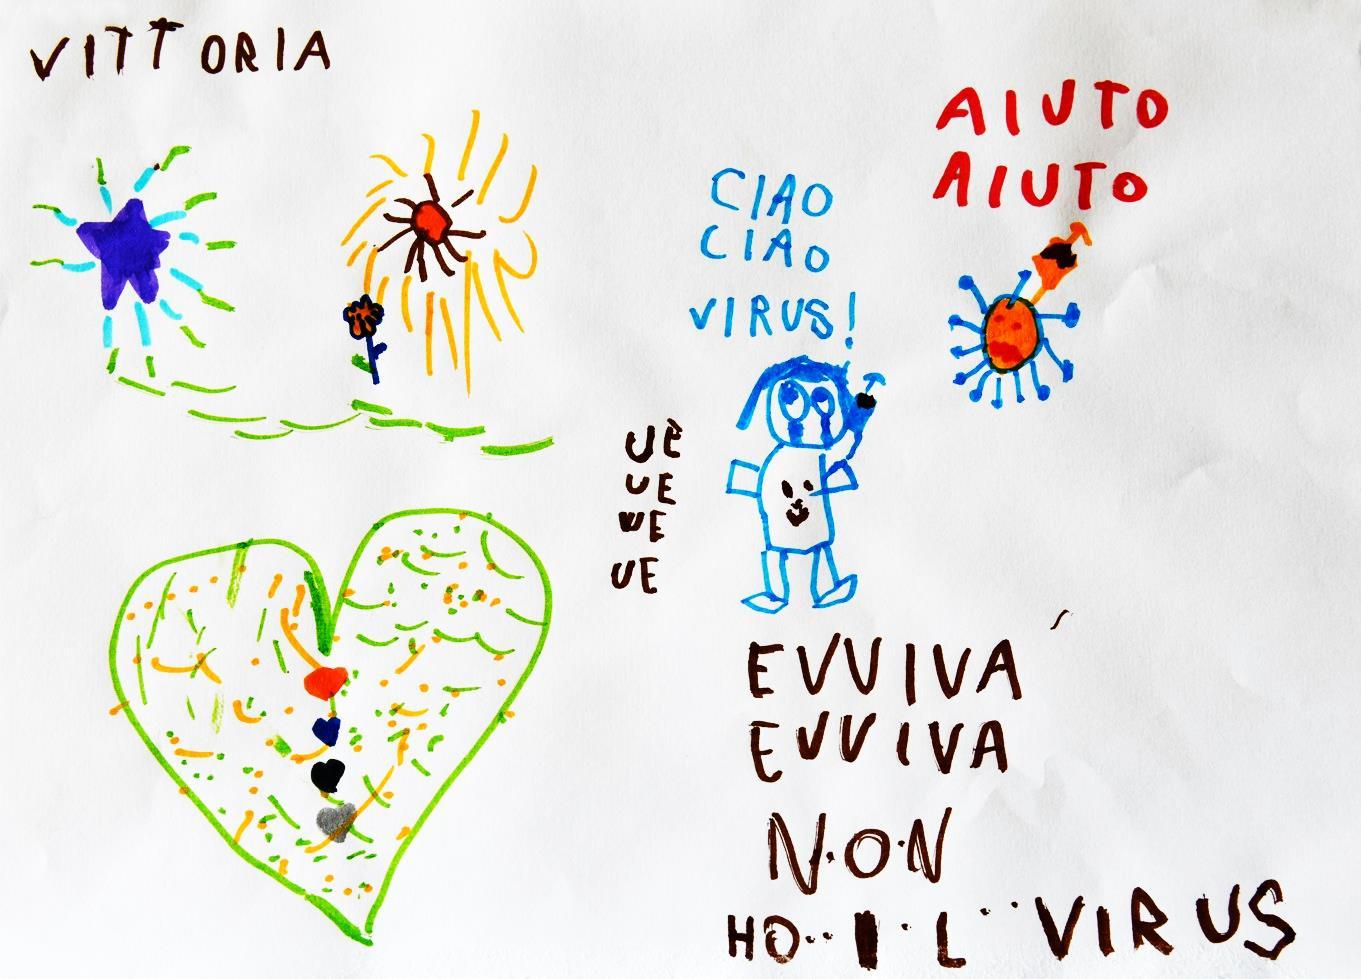 VITTORIA
AIUTO
AIUTO
CIAO
CIAO
VIRUS!
UÈ
UE
UE
UE
EVVIVA
EVVIVA
N.O.N
HO.. I. L ... VIRUS